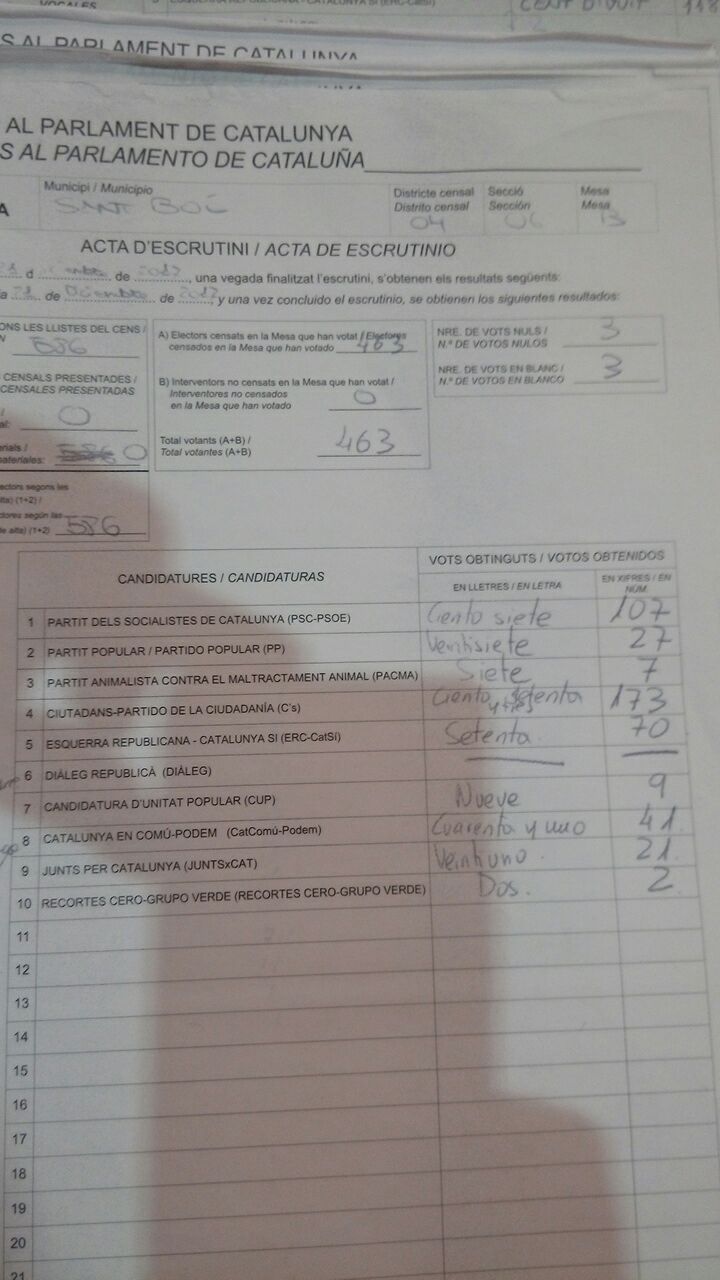 VOCALES
S AL PARLAMENT DE CATALUNYA
AL PARLAMENT DE CATALUNYA
S AL PARLAMENTO DE CATALUÑA
A
Municipi / Municipio
SANT BOI
Districte censal
Distrito censal
04
Secció
Sección
Mesa
Mesa
ACTA D'ESCRUTINI / ACTA DE ESCRUTINIO
21 d de 2017, una vegada finalitzat l'escrutini, s'obtenen els resultats següents:
a 21 de Diciembre de 2017, y una vez concluido el escrutinio, se obtienen los siguientes resultados:
ONS LES LLISTES DEL CENS /
N 586
CENSALS PRESENTADES /
CENSALES PRESENTADAS
/
al: 0
erials /
materiales: 0
ectors segons les
lta) (1+2) /
tores según las
de alta) (1+2) 586
A) Electors censats en la Mesa que han votat / Electores
censados en la Mesa que han votado 463
B) Interventors no censats en la Mesa que han votat /
Interventores no censados
en la Mesa que han votado 0
Total votants (A+B) /
Total votantes (A+B) 463
NRE. DE VOTS NULS /
N.º DE VOTOS NULOS 3
NRE. DE VOTS EN BLANC /
N.º DE VOTOS EN BLANCO 3
CANDIDATURES / CANDIDATURAS
VOTS OBTINGUTS / VOTOS OBTENIDOS
EN LLETRES / EN LETRA
EN XIFRES / EN
NÚM.
1 PARTIT DELS SOCIALISTES DE CATALUNYA (PSC-PSOE) Ciento siete 107
2 PARTIT POPULAR / PARTIDO POPULAR (PP) Veintisiete 27
3 PARTIT ANIMALISTA CONTRA EL MALTRACTAMENT ANIMAL (PACMA) Siete 7
4 CIUTADANS-PARTIDO DE LA CIUDADANÍA (C's) Ciento setenta y tres 173
5 ESQUERRA REPUBLICANA - CATALUNYA SI (ERC-CatSí) Setenta. 70
6 DIÀLEG REPUBLICÀ (DIÀLEG)
7 CANDIDATURA D'UNITAT POPULAR (CUP) Nueve 9
8 CATALUNYA EN COMÚ-PODEM (CatComú-Podem) Cuarenta y uno 41
9 JUNTS PER CATALUNYA (JUNTSxCAT) Veintiuno. 21
10 RECORTES CERO-GRUPO VERDE (RECORTES CERO-GRUPO VERDE) Dos. 2
11
12
13
14
15
16
17
18
19
20
21